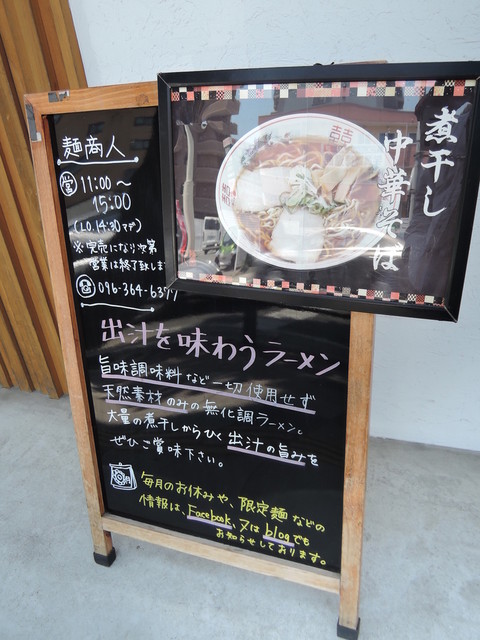 煮干し
中華そば
麺商人
営 11:00〜
15:00
(L.O.14:30まで)
※完売になり次第
営業は終了致しま
096-364-6377
出汁を味わうラーメン
旨味調味料など一切使用せず
天然素材のみの無化調ラーメン。
大量の煮干しからひく出汁の旨みを
ぜひご賞味下さい。
毎月のお休みや、限定麺などの
情報は、Facebook、又はblogでも
お知らせしております。